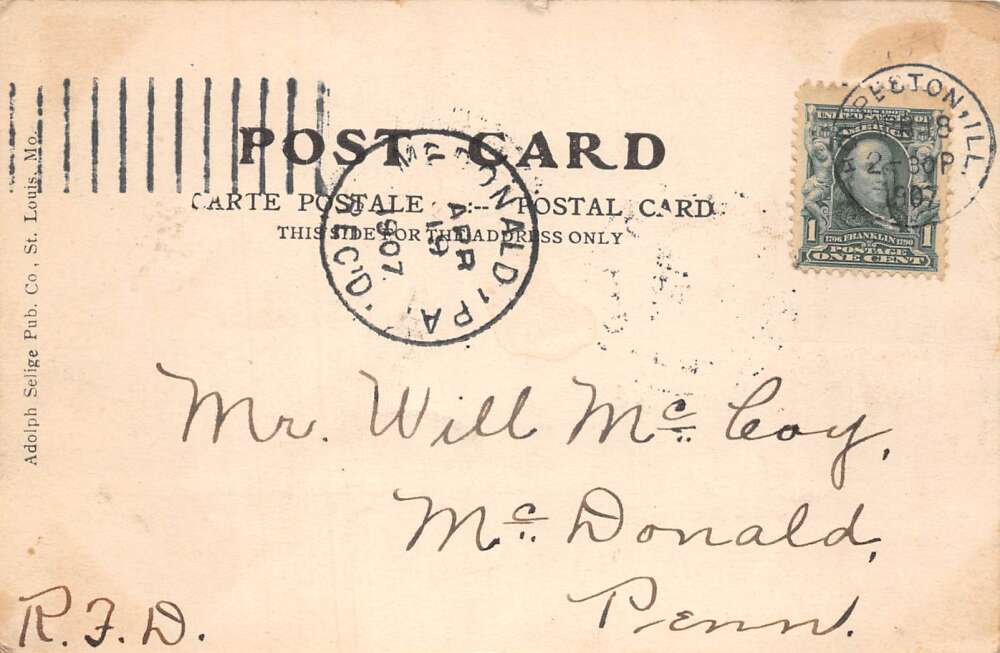 POST CARD
CARTE POSTALE -:-- POSTAL CARD
THIS SIDE FOR THE ADDRESS ONLY
Adolph Selige Pub. Co., St. Louis, Mo.
McDONALD, PA.
APR
19
1907
REC'D.
ILL.
8
2-30P
1907
UNITED STATES OF
AMERICA
1 1706 FRANKLIN 1790 1
POSTAGE
ONE CENT
Mr. Will Mc. Coy,
Mc. Donald,
Penn.
R. F. D.